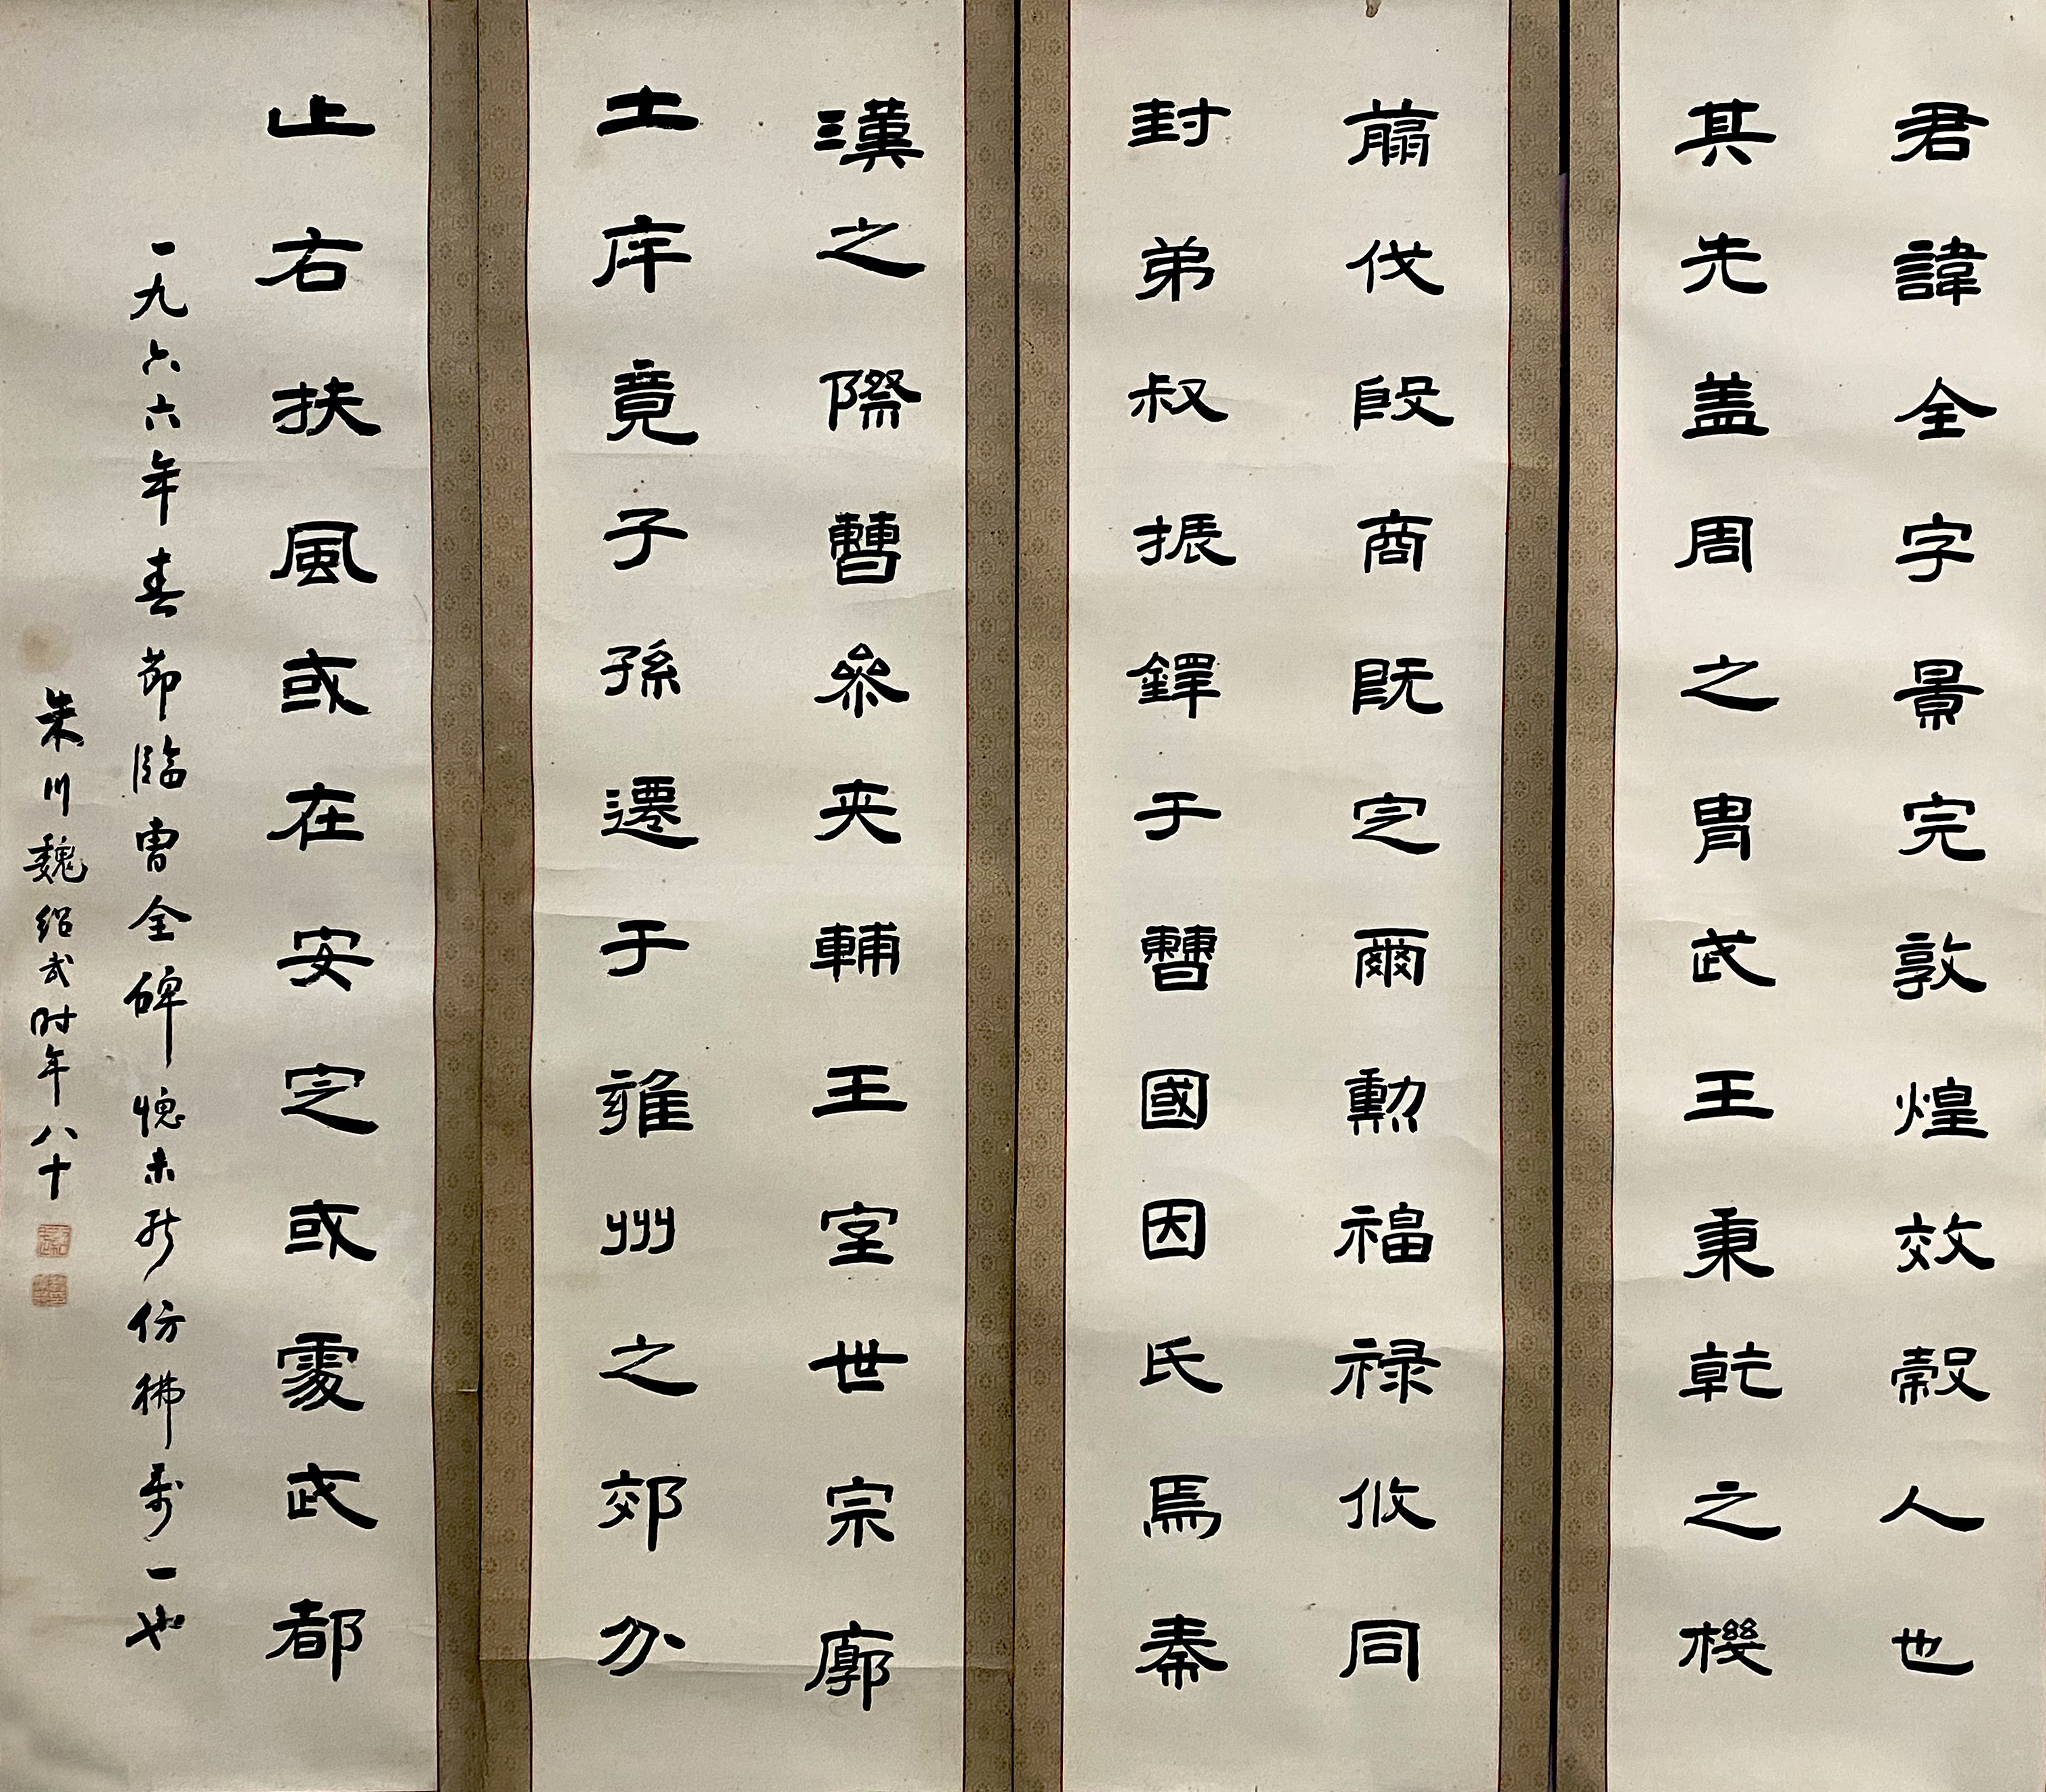 君諱全字景完敦煌效穀人也
其先盖周之胄武王秉乾之機
翦伐殷商既定爾勲福禄攸同
封弟叔振鐸于曹國因氏焉秦
漢之際曹參夾輔王室世宗廓
土斥竟子孫遷于雍州之郊分
止右扶風或在安定或處武都
一九六六年春節臨曹全碑愧未能仿彿万一也
朱川魏紹武时年八十